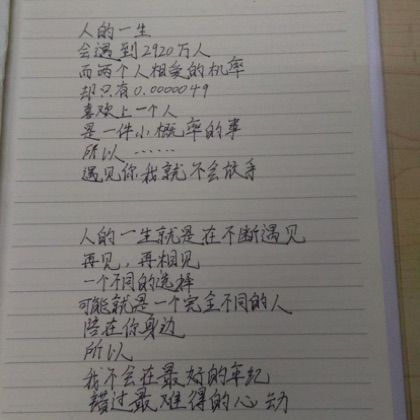 人的一生
会遇到2920万人
而两个人相爱的机率
却只有0.0000049
喜欢上一个人
是一件小概率的事
所以……
遇见你我就不会放手
人的一生就是在不断遇见
再见，再相见
一个不同的选择
可能就是一个完全不同的人
陪在你身边
所以
我不会在最好的年纪
错过最难得的心动